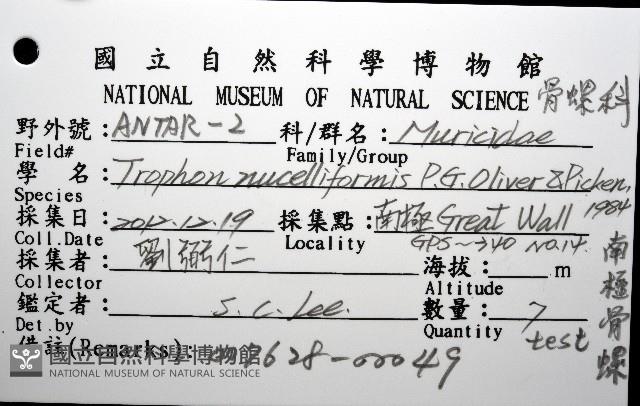 國立自然科學博物館
NATIONAL MUSEUM OF NATURAL SCIENCE 骨螺科
野外號: ANTAR-2 科/群名: Muricidae
Field# Family/Group
學名: Trophon nucelliformis P.G. Oliver & Picken, 1984
Species
採集日: 2012.12.19 採集點: 南極 Great Wall
Coll.Date Locality GPS~→40 NO.14.
採集者: 劉弼仁 海拔: m
Collector Altitude
鑑定者: S.C. Lee. 數量: 7 test
Det.by Quantity
南極骨螺
備註(Remarks): 628-00049
國立自然科學博物館
NATIONAL MUSEUM OF NATURAL SCIENCE